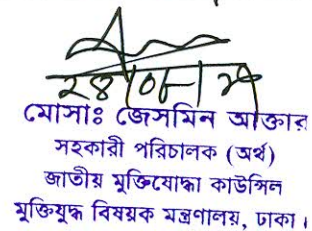 মোসাঃ জেসমিন আক্তার
সহকারী পরিচালক (অর্থ)
জাতীয় মুক্তিযোদ্ধা কাউন্সিল
মুক্তিযুদ্ধ বিষয়ক মন্ত্রণালয়, ঢাকা।